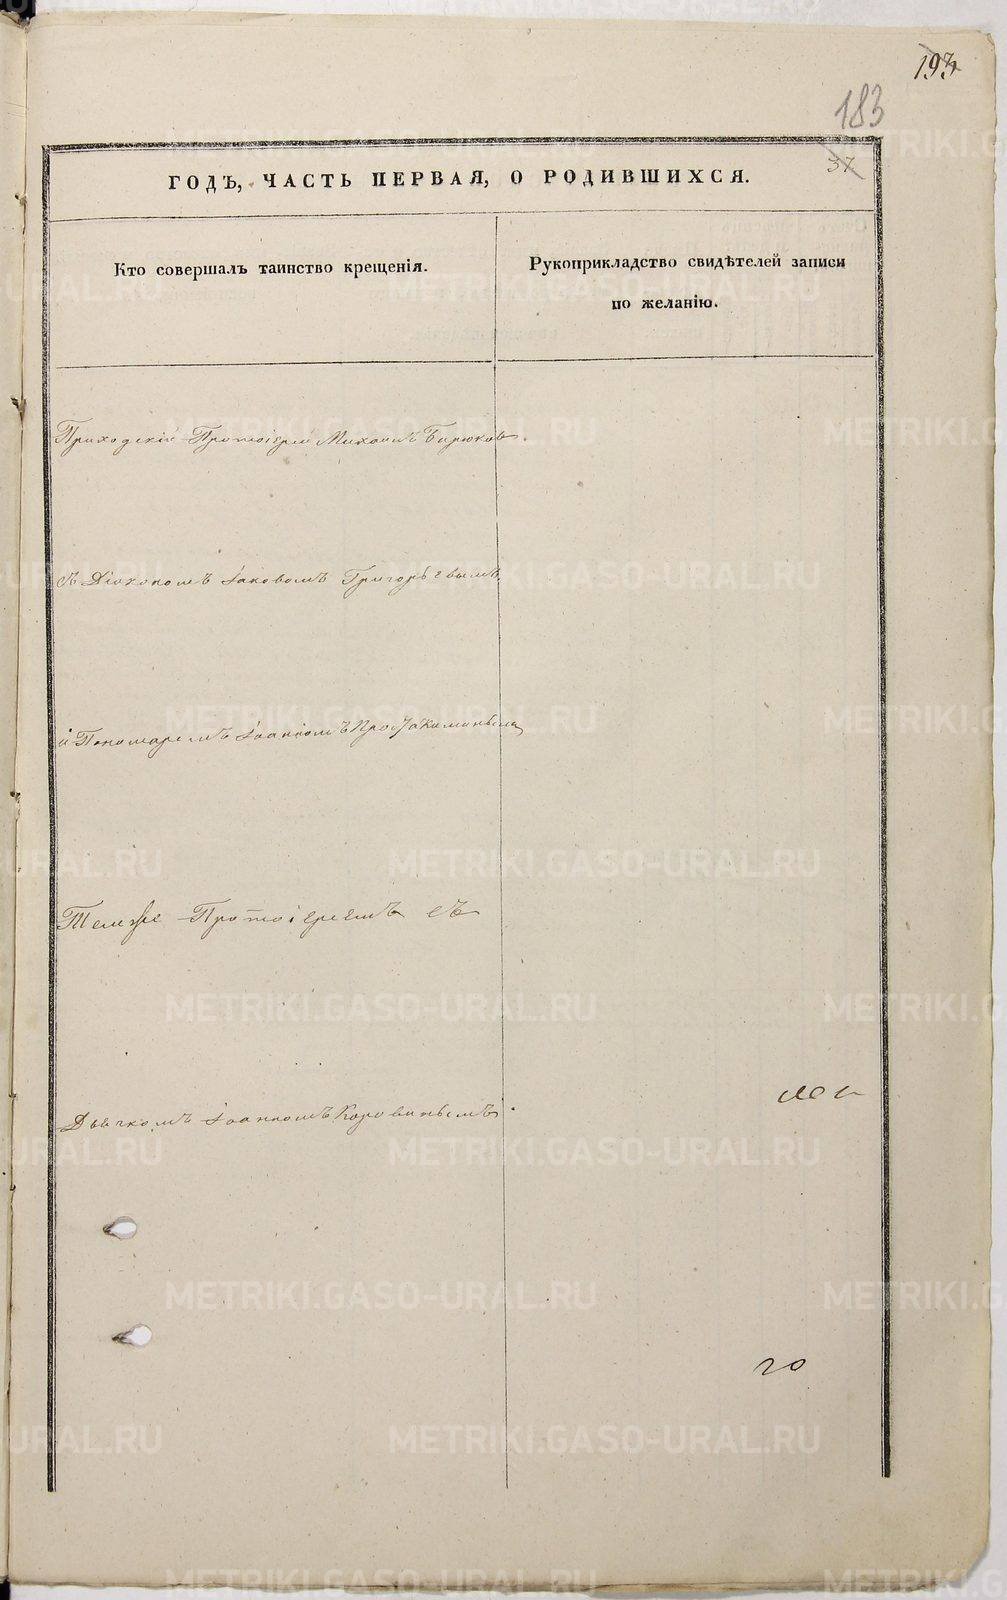 193
183
37
ГОДЪ, ЧАСТЬ ПЕРВАЯ, О РОДИВШИХСЯ.
Кто совершалъ таинство крещенія.
Рукоприкладство свидѣтелей записи
по желанію.
Приходскій Протоіерей Михаилъ Бирюковъ.
съ Діакономъ Іаковомъ Григорьевымъ
и Пономаремъ Іоанномъ
Темже Протоіереемъ съ
Дьячкомъ Іоанномъ Коровинымъ.
го
METRIKI.GASO-URAL.RU